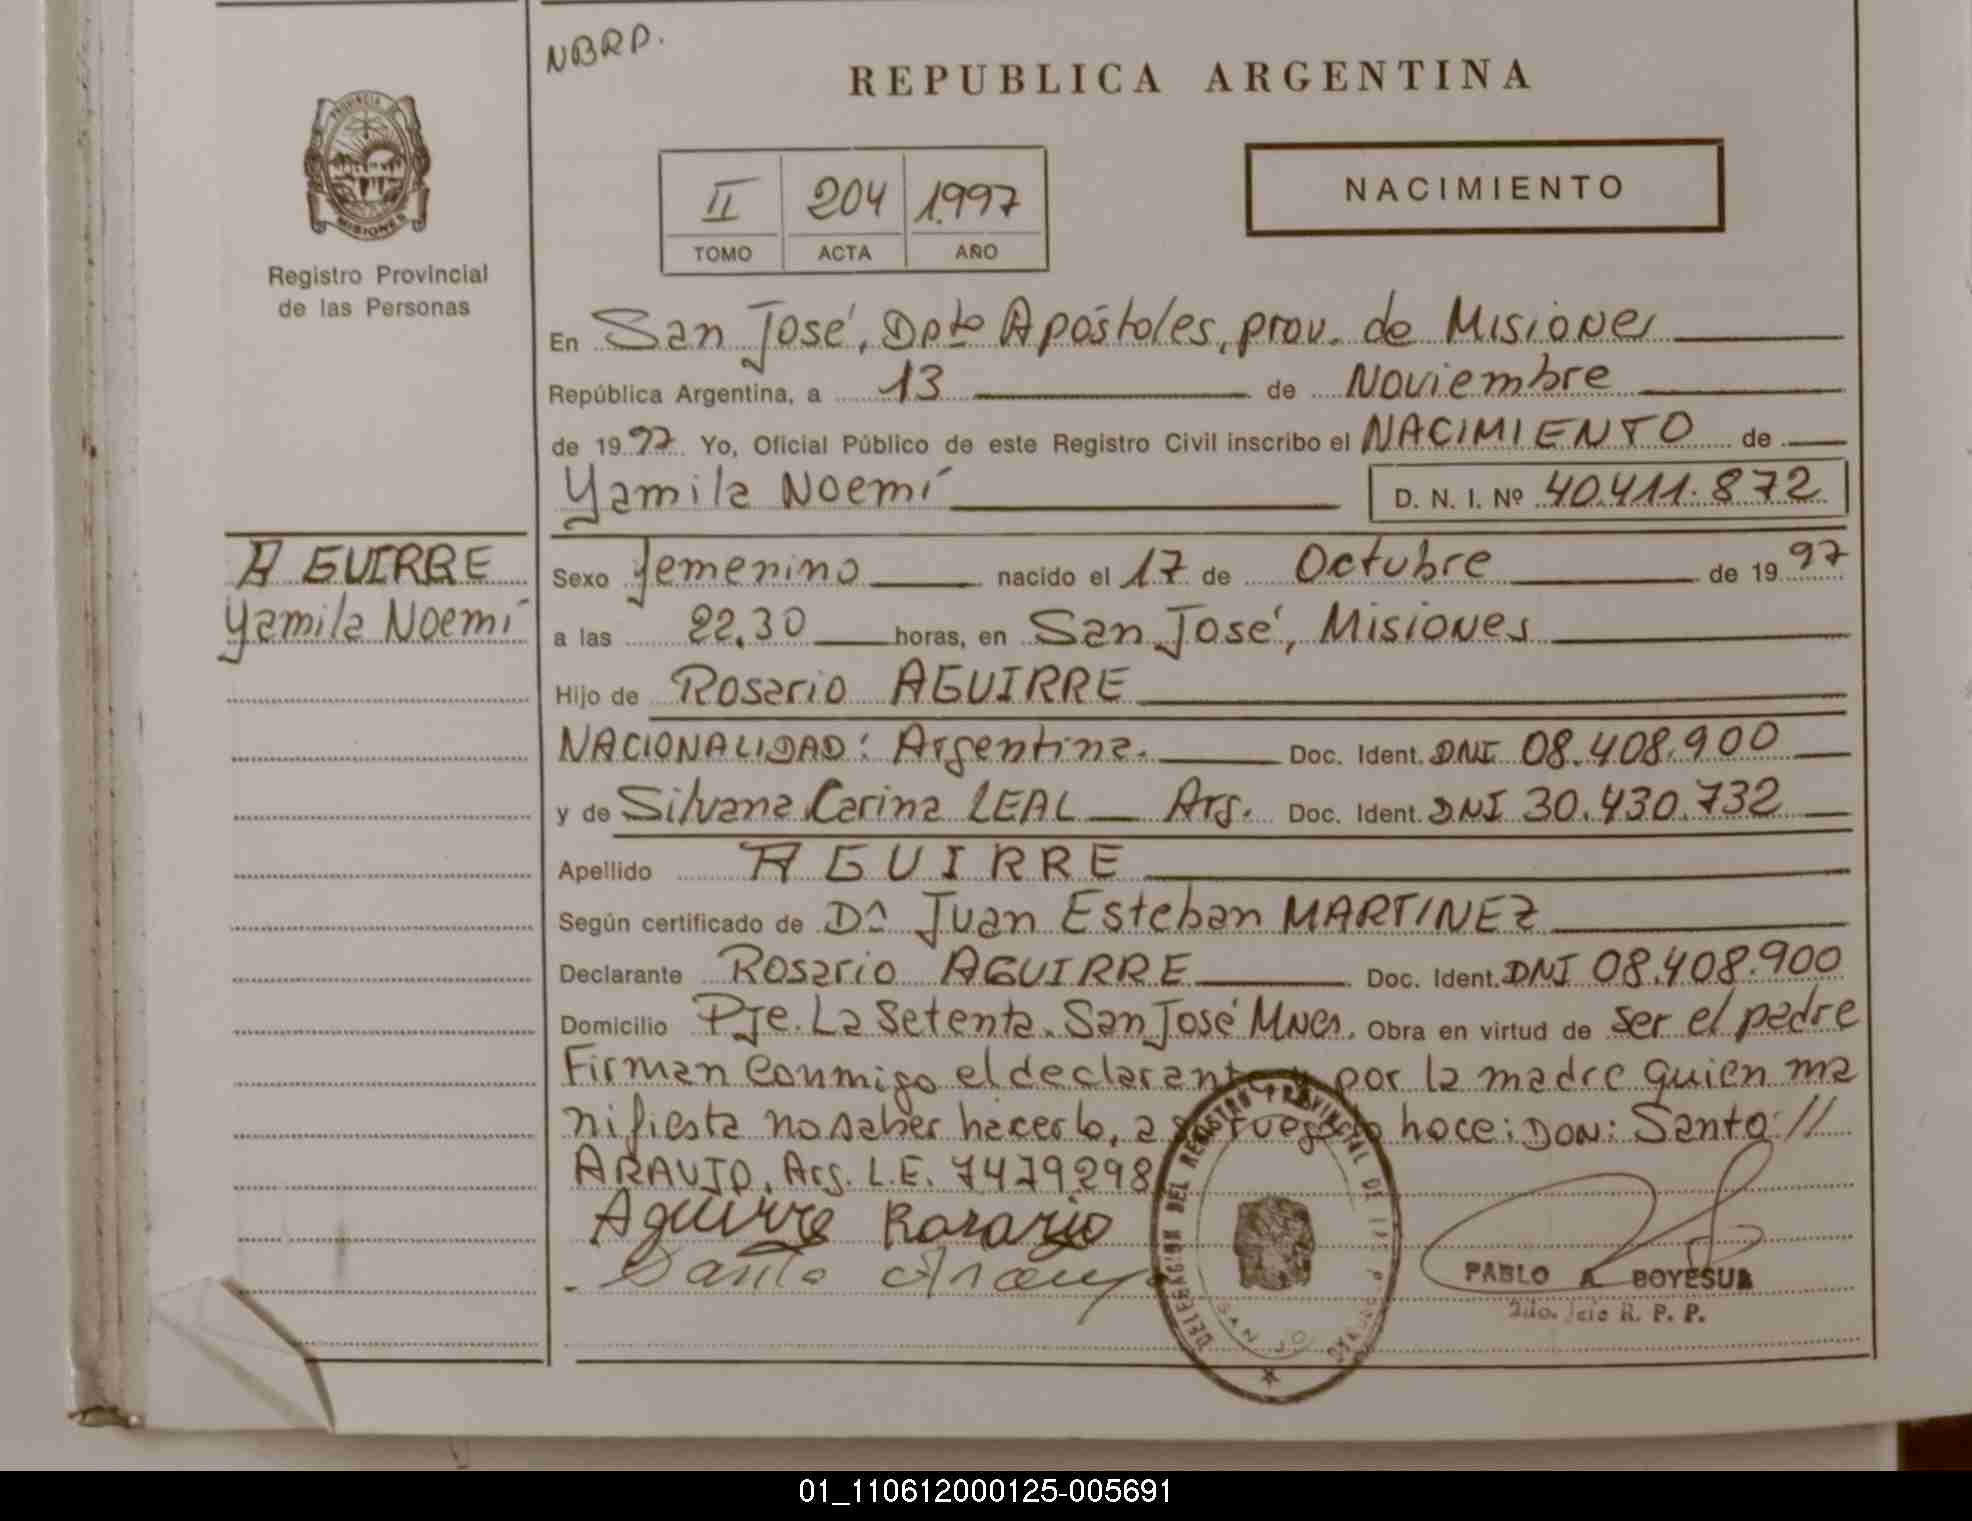 NBRP.
REPUBLICA ARGENTINA
PROVINCIA DE
MISIONES
Registro Provincial
de las Personas
II 204 1.997
TOMO ACTA AÑO
NACIMIENTO
En San José, Dpto Apóstoles, prov. de Misiones
República Argentina, a 13 de Noviembre
de 1997. Yo, Oficial Público de este Registro Civil inscribo el NACIMIENTO de
Yamila Noemí D. N. I. Nº 40.411.872
AGUIRRE
Yamila Noemí
Sexo femenino nacido el 17 de Octubre de 1997
a las 22.30 horas, en San José, Misiones
Hijo de Rosario AGUIRRE
NACIONALIDAD: Argentina. Doc. Ident. DNI 08.408.900
y de Silvana Carina LEAL Arg. Doc. Ident. DNI 30.430.732
Apellido AGUIRRE
Según certificado de Dn Juan Esteban MARTINEZ
Declarante Rosario AGUIRRE Doc. Ident. DNI 08.408.900
Domicilio Pje. La Setenta. San José Mnes. Obra en virtud de ser el padre
Firman conmigo el declarante y por la madre quien ma
nifiesta no saber hacerlo, a su ruego lo hace: DON: Santo //
ARAUJO, Arg. L.E. 7479298
Aguirre Rosario
Santo Arauj
DELEGACION DEL REGISTRO PROVINCIAL DE
SAN JO
PABLO A. BOYESUK
R. P. P.
01_110612000125-005691